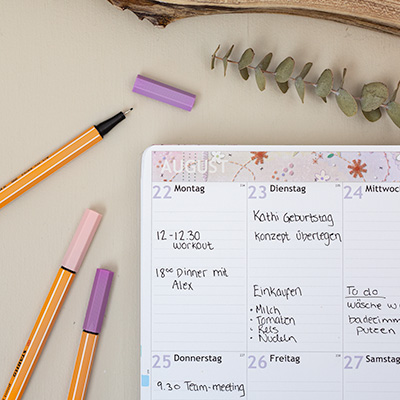 AUGUST
22 Montag
12 - 12.30
workout
18°° Dinner mit
Alex
23 Dienstag
Kathi Geburtstag
konzept überlegen
Einkaufen
• Milch
• Tomaten
• Keks
• Nudeln
24 Mittwoch
To do
wäsche
badezimm
putzen
25 Donnerstag
9.30 Team-meeting
26 Freitag
27 Samstag